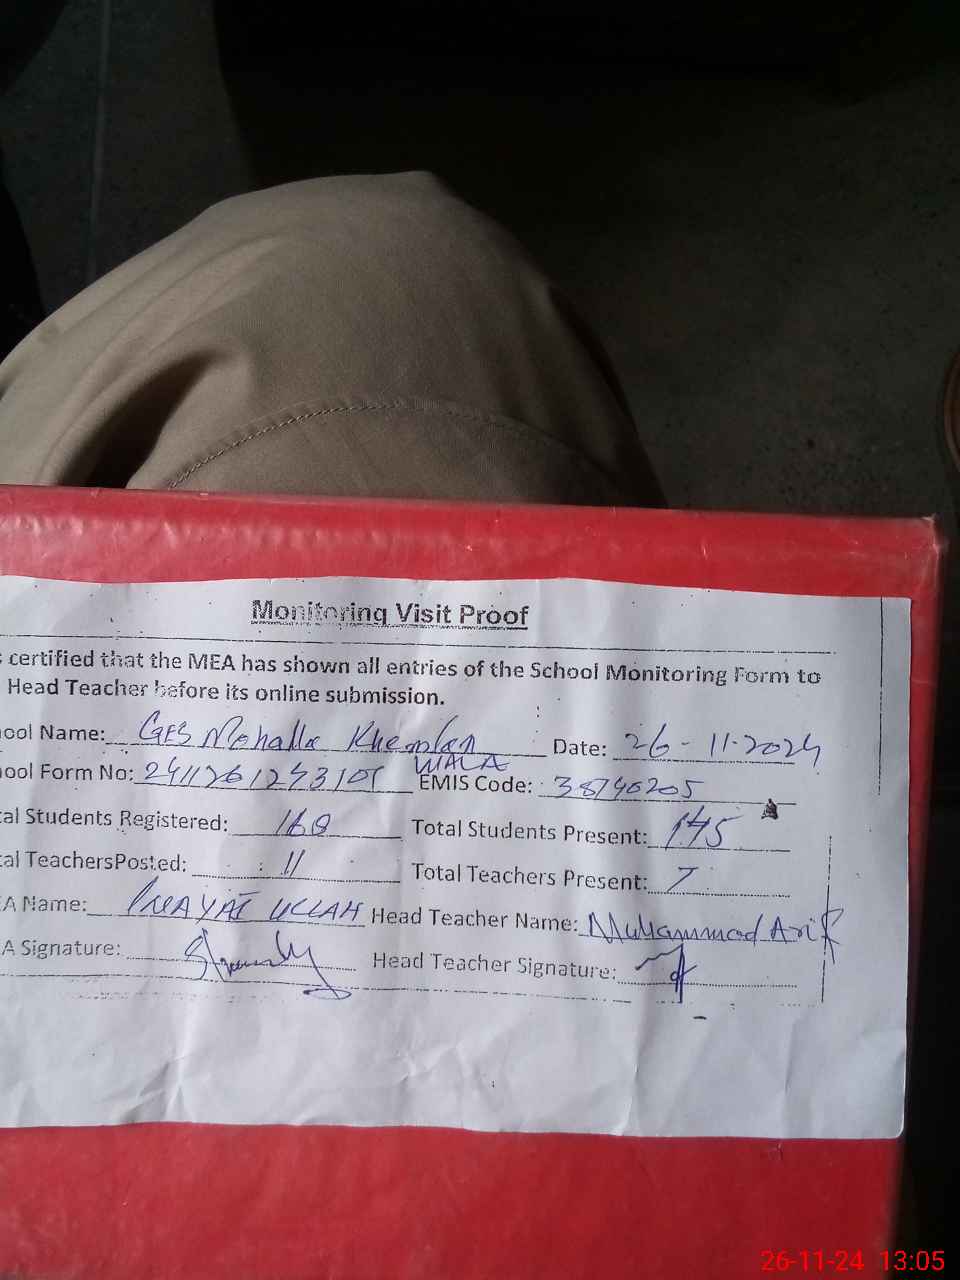 Monitoring Visit Proof
s certified that the MEA has shown all entries of the School Monitoring Form to
Head Teacher before its online submission.
ool Name: GES Mohalla Date: 26-11-2024
WALA
ool Form No: EMIS Code: 38740205
al Students Registered: 168 Total Students Present: 145
al TeachersPosted: 11 Total Teachers Present: 7
A Name: INAYAT ULLAH Head Teacher Name: Muhammad Arif
A Signature: Head Teacher Signature:
26-11-24 13:05